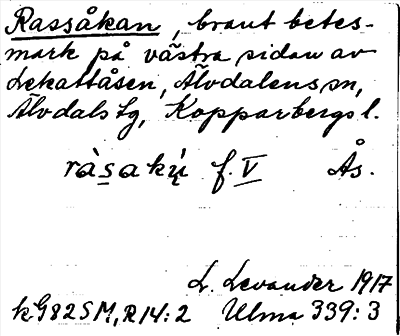 Rassåkan, brant betes-
mark på västra sidan av
Lekattåsen, Älvdalens sn,
Älvdals tg, Kopparbergs l.
ràsakų̀ f. V Ås.
L. Levander 1917
kG82SM, R14:2 Ulma 339:3